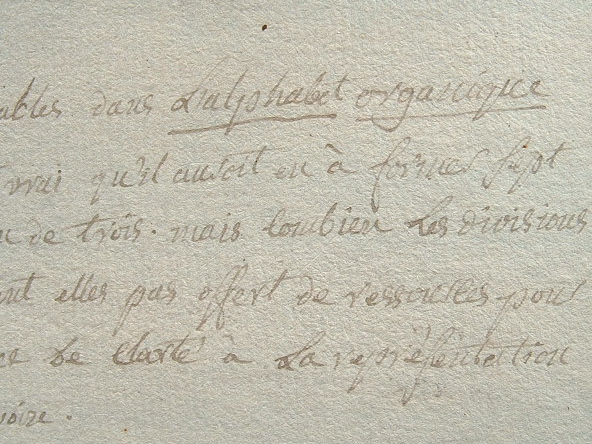 ables dans L'alphabet organique
vrai qu'il auroit eu à former sept
de trois. mais combien Les divisions
elles pas offert de ressources pour
ce de clarté à La représentation